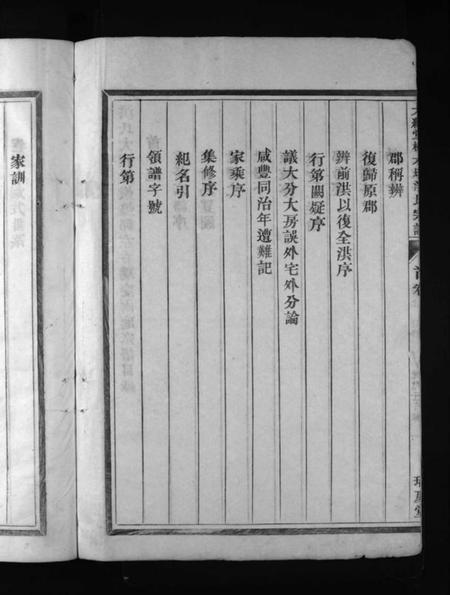 首卷
郡稱辨
復歸原郡
辨前洪以復全洪序
行第闕疑序
議大分大房誤外宅外分論
咸豐同治年遭難記
家乘序
集修序
紀名引
領譜字號
行第
家訓